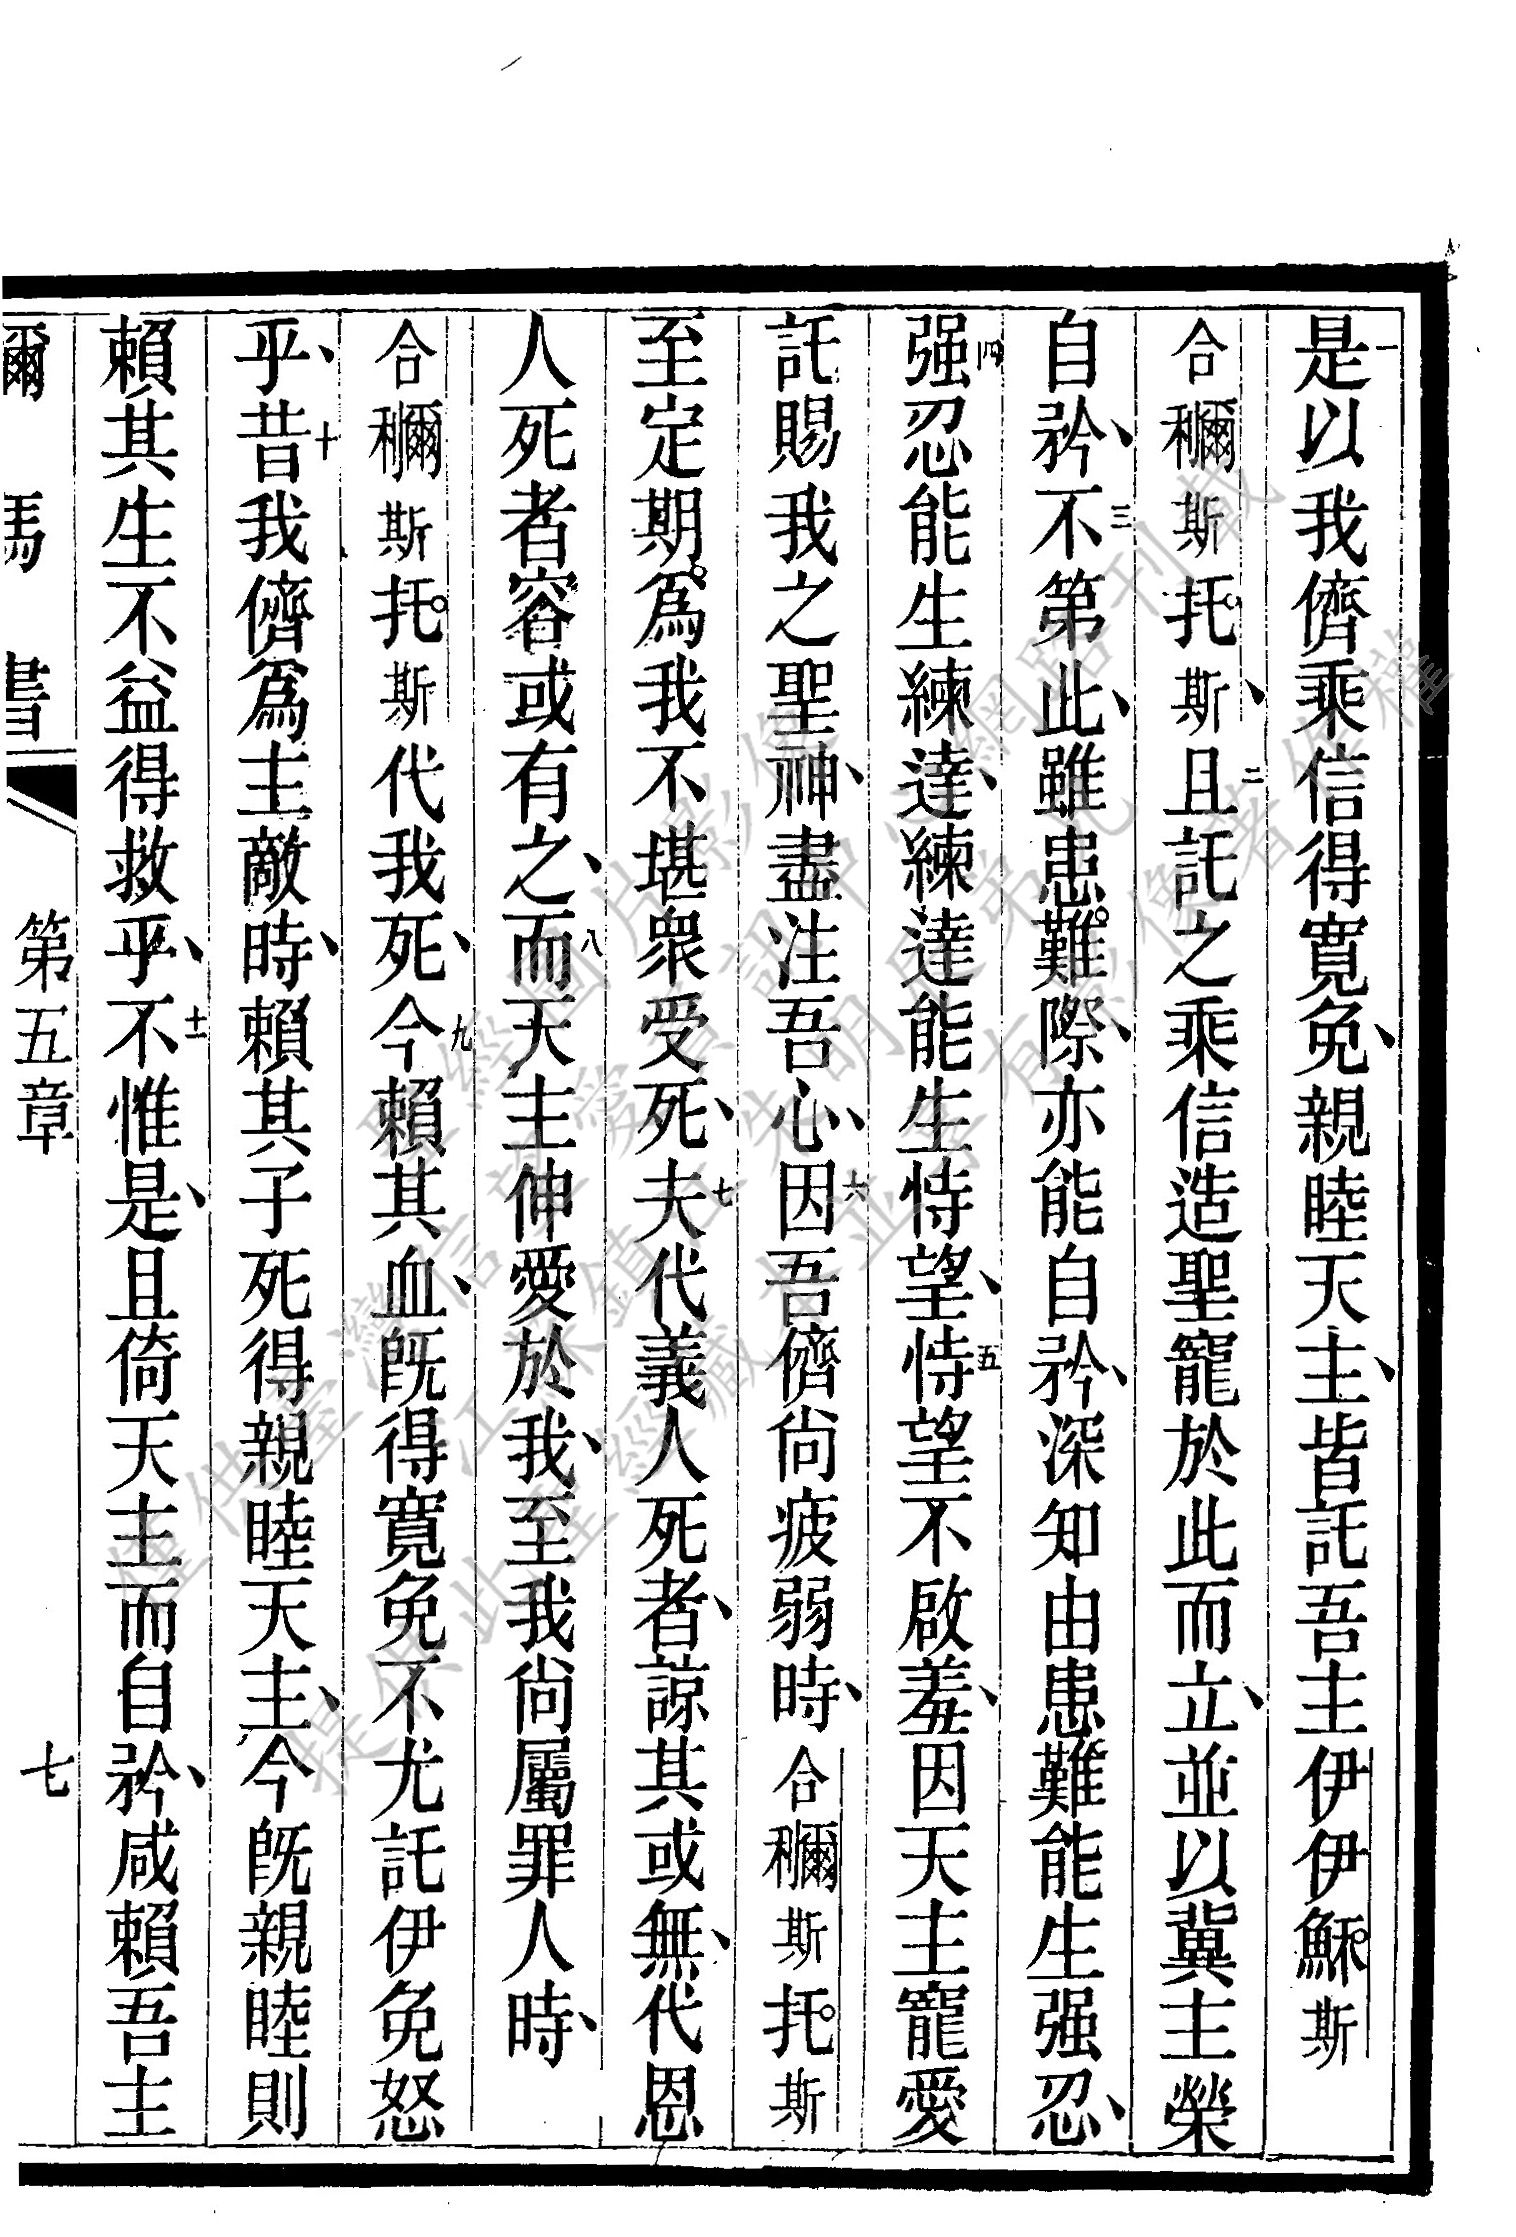 一是以我儕乘信得寬免、親睦天主、皆託吾主伊伊穌。斯
合𥣡斯托。斯、二且託之乘信造聖寵於此而立、並以冀主榮
自矜、三不第此、雖患難。際、亦能自矜、深知由患難能生强忍、
四强忍能生練達、練達能生恃望、五恃望不啟羞、因天主寵愛
託賜我之聖神、盡注吾心、六因吾儕尙疲弱時、合𥣡斯托。斯
至定期。爲我不堪衆受死、七夫代義人死者、諒其或無、代恩
人死者容或有之、八而天主伸愛於我、至我尙屬罪人時、
合𥣡斯托。斯代我死、九今賴其血、旣得寬免不尤託伊免怒
乎、十昔我儕爲主敵時、賴其子死得親睦天主、今旣親睦則
賴其生不益得救乎、十一不惟是、且倚天主而自矜、咸賴吾主
爾馬書 第五章 七
僅供臺灣信望愛資訊中心網路刊載
提供此聖經藏本並擁有影像著作權